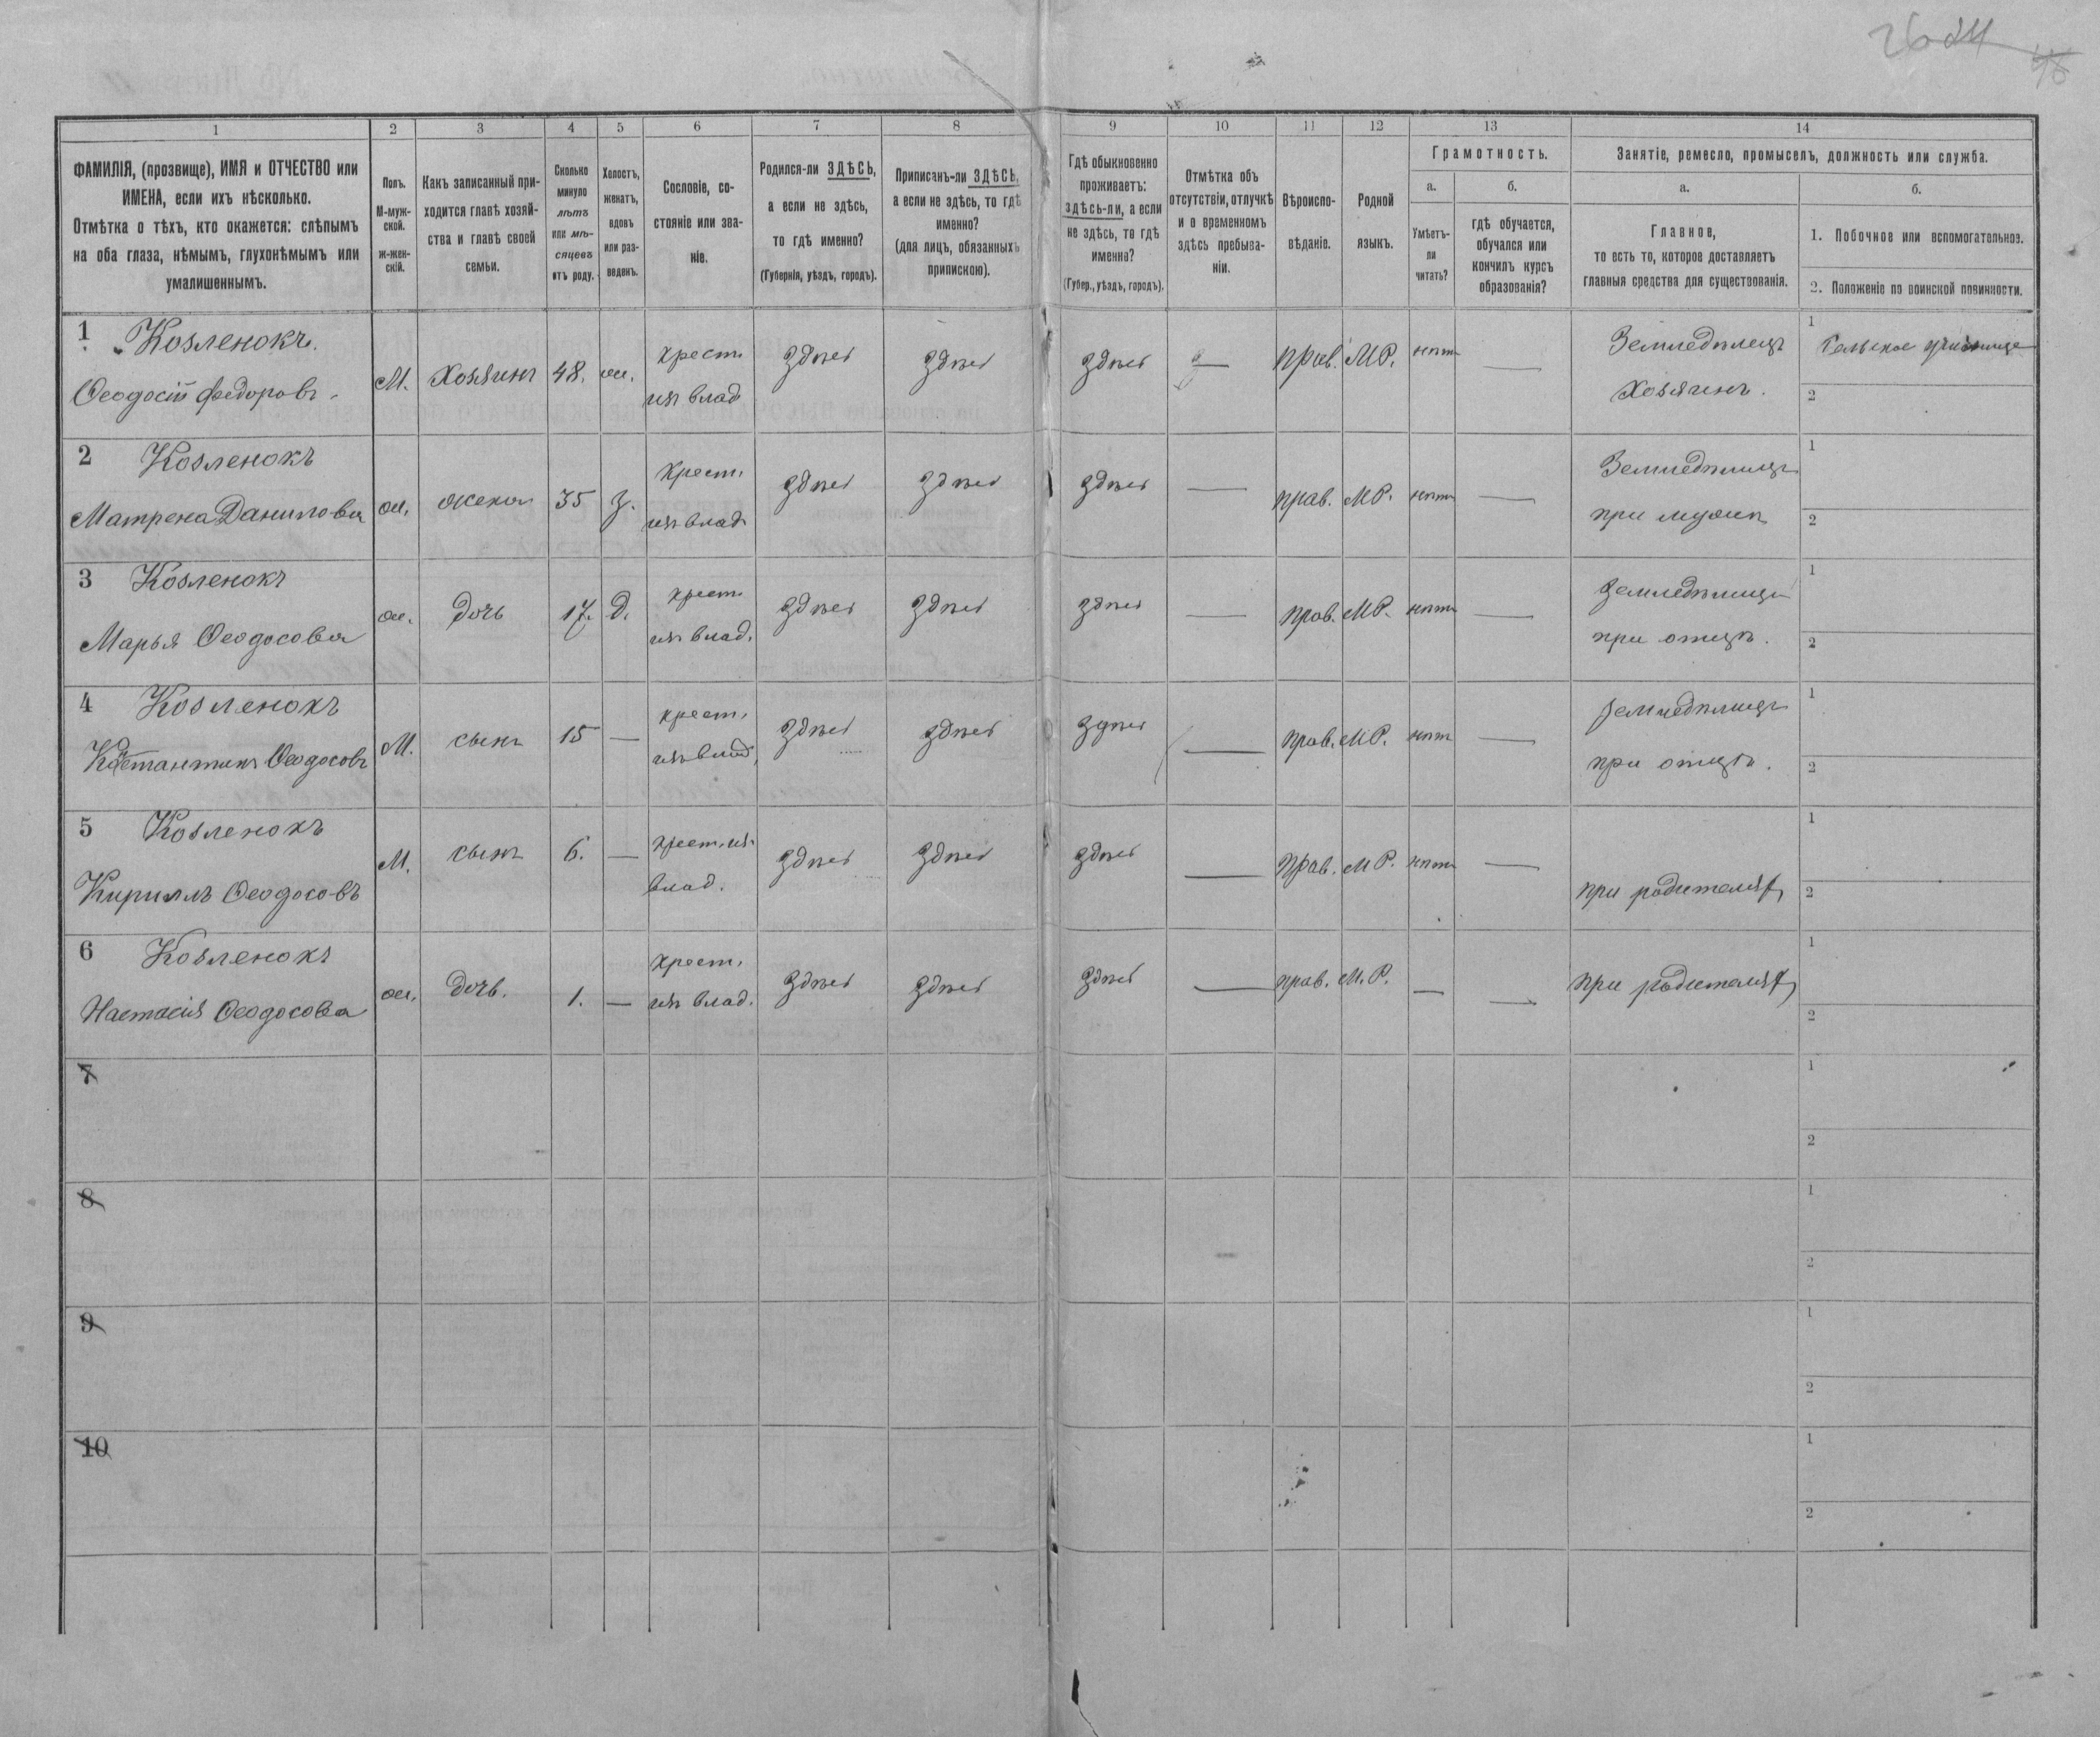 26 24 46
1 2 3 4 5 6 7 8 9 10 11 12 13 14
ФАМИЛІЯ, (прозвище), ИМЯ и ОТЧЕСТВО или
ИМЕНА, если ихъ нѣсколько.
Отмѣтка о тѣхъ, кто окажется: слѣпымъ
на оба глаза, нѣмымъ, глухонѣмымъ или
умалишеннымъ.
Полъ.
М-муж-
ской.
ж-жен-
скій.
Какъ записанный при-
ходится главѣ хозяй-
ства и главѣ своей
семьи.
Сколько
минуло
лѣтъ
или мѣ-
сяцевъ
отъ роду.
Холостъ,
женатъ,
вдовъ
или раз-
веденъ.
Сословіе, со-
стояніе или зва-
ніе.
Родился-ли ЗДѢСЬ,
а если не здѣсь,
то гдѣ именно?
(Губернія, уѣздъ, городъ).
Приписанъ-ли ЗДѢСЬ,
а если не здѣсь, то гдѣ
именно?
(для лицъ, обязанныхъ
припискою).
Гдѣ обыкновенно
проживаетъ:
здѣсь-ли, а если
не здѣсь, то гдѣ
именно?
(Губер., уѣздъ, городъ).
Отмѣтка объ
отсутствіи, отлучкѣ
и о временномъ
здѣсь пребыва-
ніи.
Вѣроиспо-
вѣданіе.
Родной
языкъ.
Грамотность.
а. б.
Умѣетъ-
ли
читать?
гдѣ обучается,
обучался или
кончилъ курсъ
образованія?
Занятіе, ремесло, промыселъ, должность или служба.
а. б.
Главное,
то есть то, которое доставляетъ
главныя средства для существованія.
1. Побочное или вспомогательное.
2. Положеніе по воинской повинности.
1 Козленокъ.
Ѳеодосій Федоровъ.
М. Хозяинъ 48. ж. крест. изъ влад здѣсь здѣсь здѣсь — прав. М Р. нѣтъ — Земледѣлецъ
Хозяинъ.
1
2
2 Козленокъ
Матрена Данилова
ж. жена 35 з. крест. изъ влад здѣсь здѣсь здѣсь — прав. М Р. нѣтъ — Земледѣлецъ
при мужѣ
1
2
3 Козленокъ
Марья Ѳеодосова
ж. дочь 17. д. крест. изъ влад. здѣсь здѣсь здѣсь — прав. М Р. нѣтъ — земледѣлецъ
при отцѣ.
1
2
4 Козленокъ
Костантинъ Ѳеодосовъ
М. сынъ 15 — крест. изъ влад. здѣсь здѣсь здѣсь — прав. М Р. нѣтъ — земледѣлецъ
при отцѣ.
1
2
5 Козленокъ
Кириллъ Ѳеодосовъ
М. сынъ 6. — крест. изъ влад. здѣсь здѣсь здѣсь — прав. М Р. нѣтъ — при родителях
1
2
6 Козленокъ
Настасія Ѳеодосова
ж. дочь. 1. — крест. изъ влад. здѣсь здѣсь здѣсь — прав. М. Р. — — при родителях
1
2
7
1
2
8
1
2
9
1
2
10
1
2